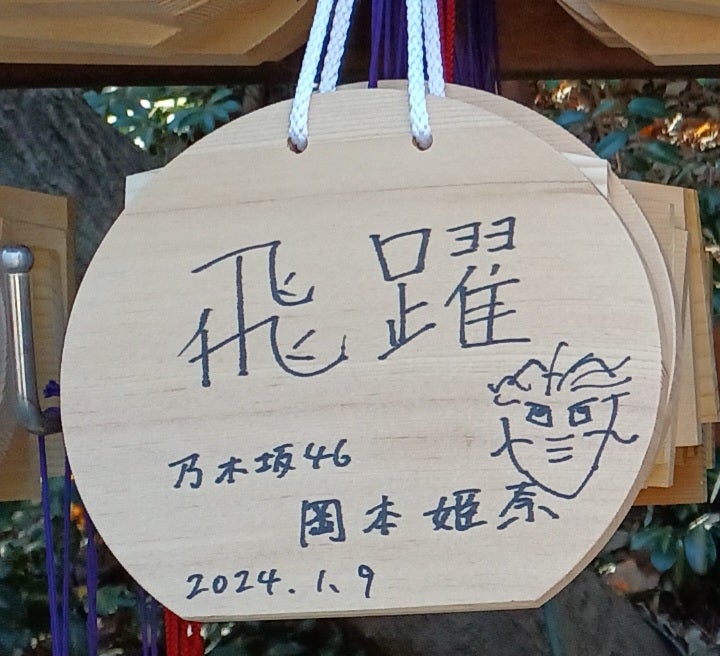 飛躍
乃木坂46
岡本姫奈
2024.1.9